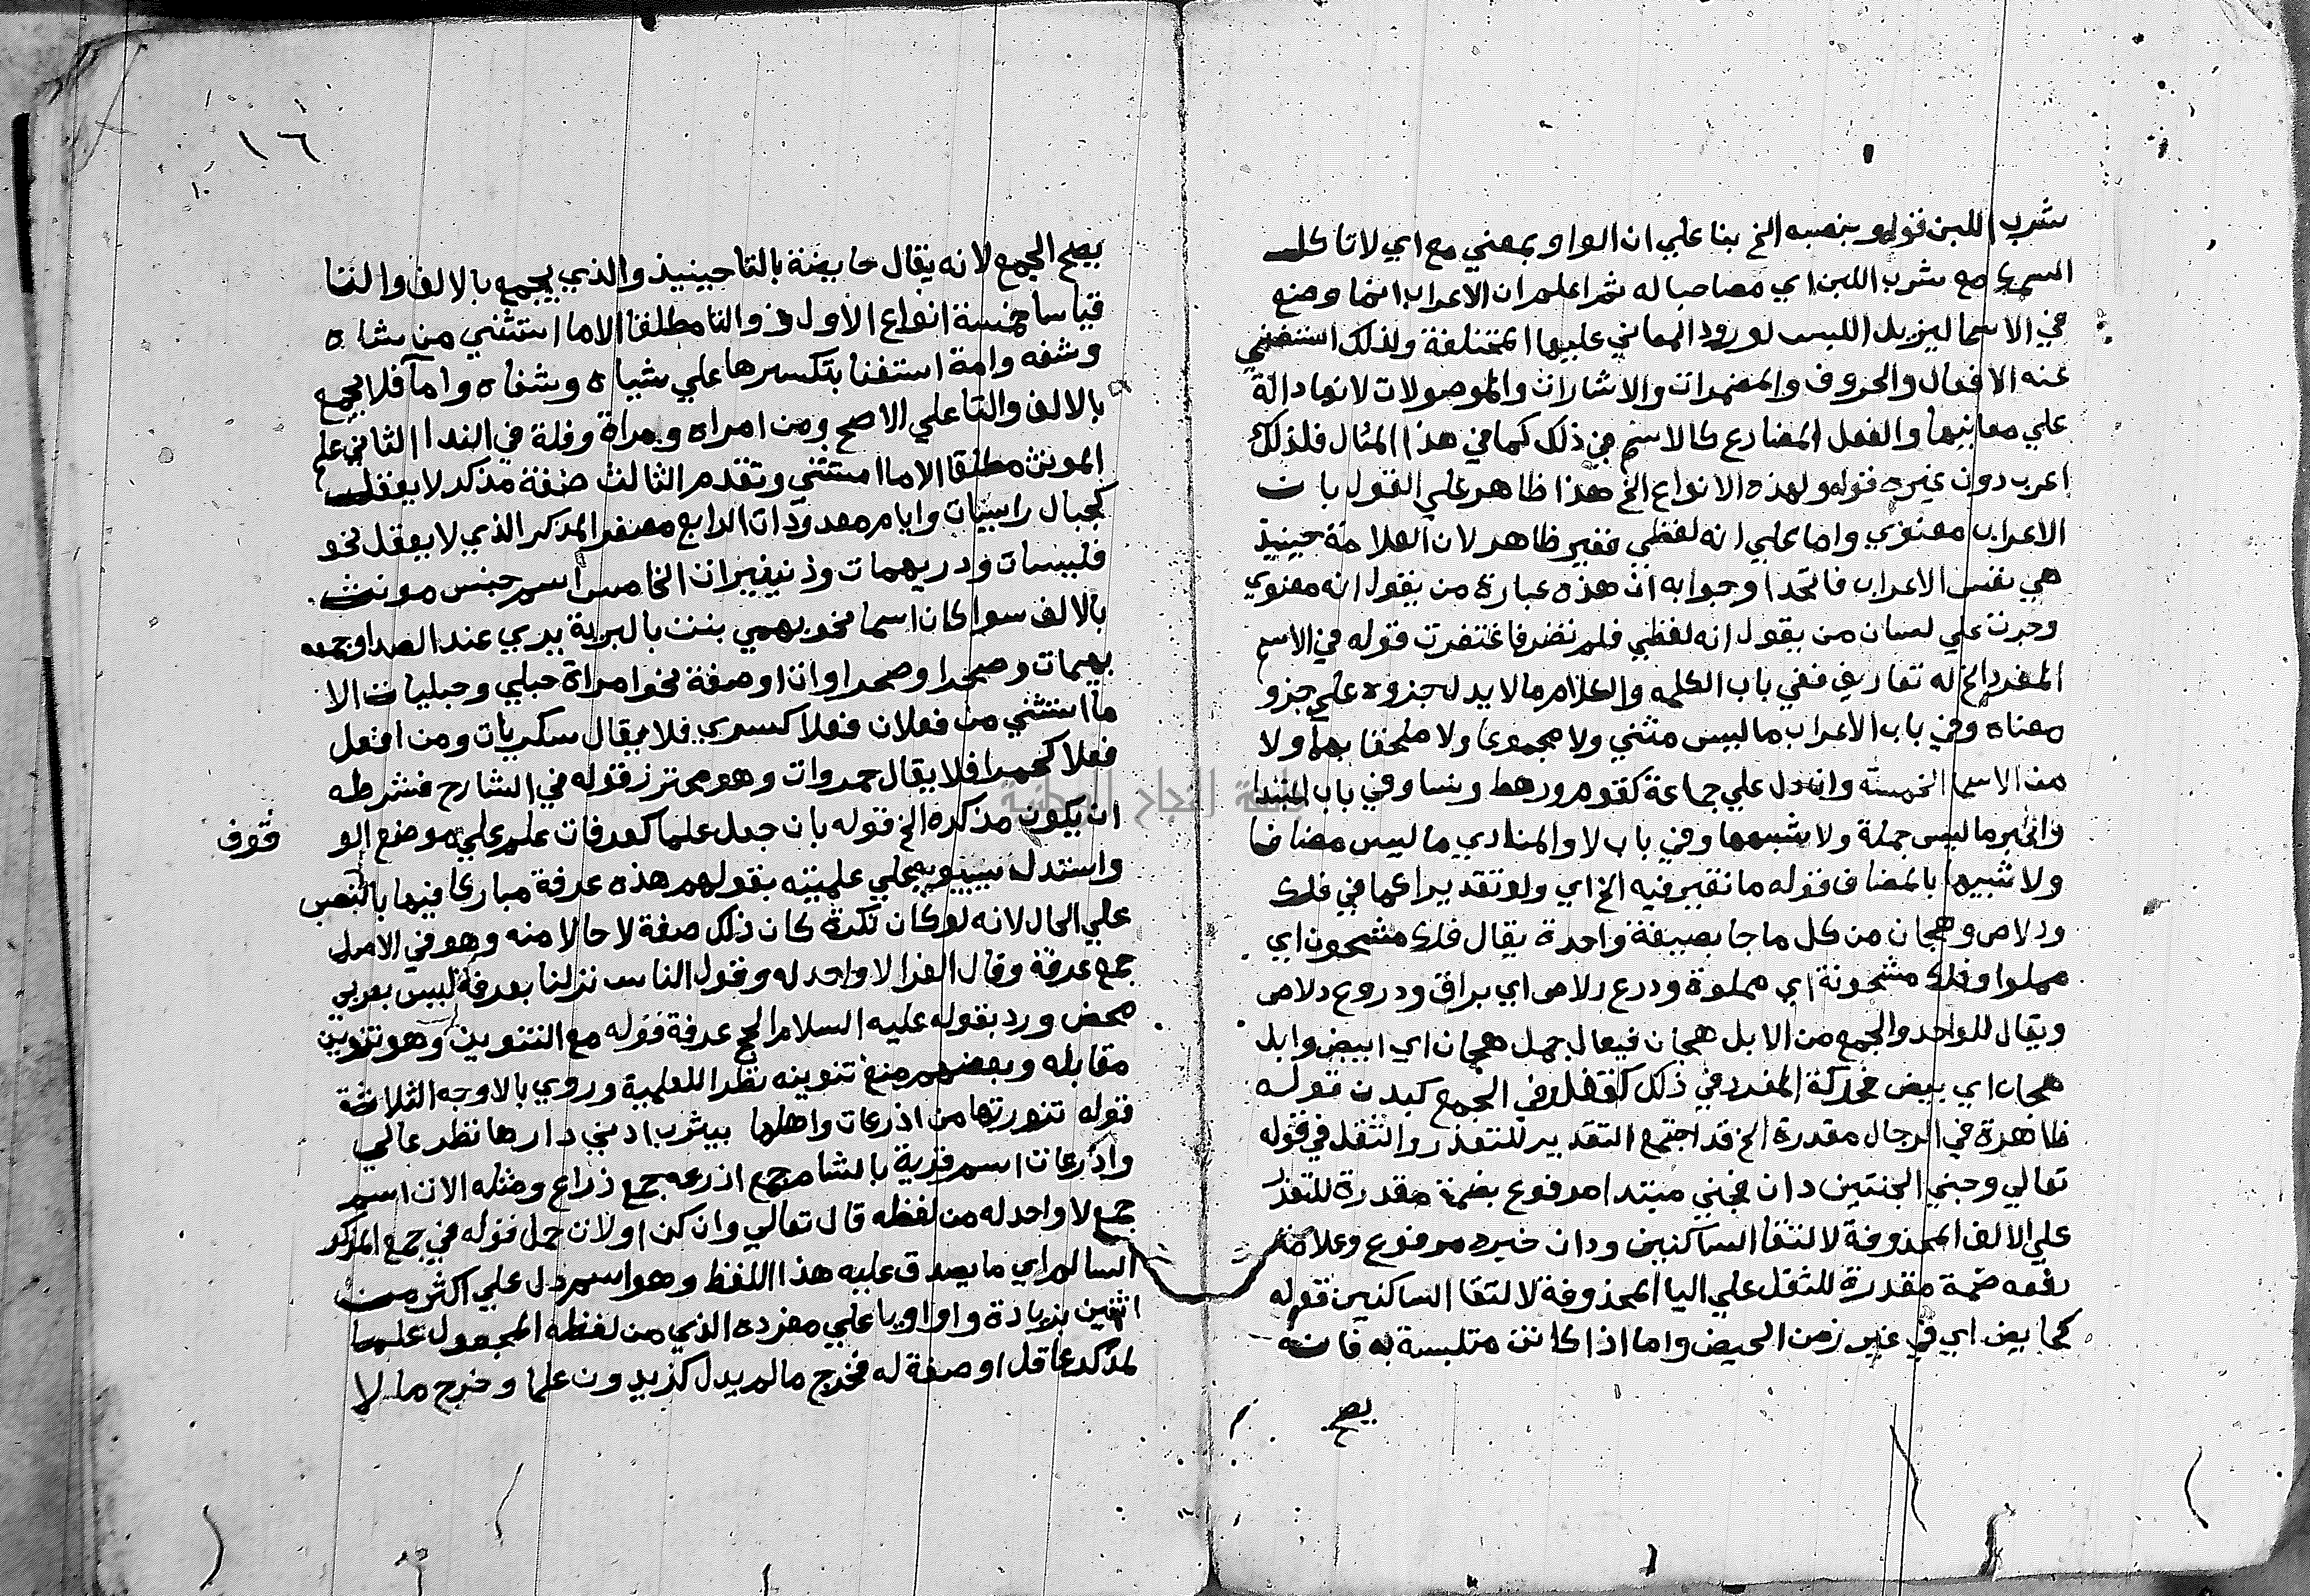 شرب اللبن قوله وبنصبه الخ بنا علي ان الواو بمعني مع اي لا تاكل
السمك مع شرب اللبن اي مصاحبا له ثم اعلم ان الاعراب انما وضع
في الاسما ليزيل اللبس لورود المعاني عليها المختلفة ولذلك استغني
عنه الافعال والحروف والمضمرات والاشارات والموصولات لانها دالة
علي معانيها والفعل المضارع كالاسم في ذلك كما في هذا المثال فلذلك
اعرب دون غيره قوله ولهذه الانواع الخ هذا ظاهر علي القول بان
الاعراب معنوي واما علي انه لفظي فغير ظاهر لان العلامة حينيذ
هي نفس الاعراب فاتحدا وجوابه ان هذه عبارة من يقول انه معنوي
وجرت علي لسان من يقول انه لفظي فلم تضر فاغتفرت قوله في الاسم
المفرد الخ له تعاريف ففي باب الكلمه والكلام ما لا يدل جزوه علي جزو
معناه وفي باب الاعراب ما ليس مثني ولا مجموعا ولا ملحقا بهما ولا
من الاسما الخمسة وان دل علي جماعة كقوم ورهط ونسا وفي باب المبتدا
والخبر ما ليس جملة ولا شبهها وفي باب لا والمنادي ما ليس مضافا
ولا شبيها بالمضاف قوله ما تغير فيه الخ اي ولو تقديرا كما في فلك
ودلاص وهجان من كل ما جا بصيغة واحدة يقال فلك مشحون اي
مملوا وفلك مشحونة اي مملوة ودرع دلاص اي براق ودروع دلاص
ويقال للواحد والجمع من الابل هجان فيقال جمل هجان اي ابيض وابل
هجان اي بيض فحركة المفرد في ذلك كقفل وفي الجمع كبدن قوله
ظاهرة في الرجال مقدرة الخ قد اجتمع التقدير للتعذر والثقل في قوله
تعالي وجني الجنتين دان فجني مبتدا مرفوع بضمة مقدرة للتعذر
علي الالف المحذوفة لالتقا الساكنين ودان خبره مرفوع وعلامة
رفعه ضمة مقدرة للثقل علي اليا المحذوفة لالتقا الساكنين قوله
كحايض اي في غير زمن الحيض واما اذا كانت متلبسة به فانه
يصح
١٦
يصح الجمع لانه يقال حايضة بالتا حينيذ والذي يجمع بالالف والتا
قياسا خمسة انواع الاول ذو التا مطلقا الا ما استثني من شاه
وشفه وامة استغنا بتكسرها علي شياه وشفاه وامآ فلا يجمع
بالالف والتا علي الاصح ومن امراه ومراة وفلة في الندا الثاني علم
المونث مطلقا الا ما استثني وتقدم الثالث صفة مذكر لا يعقل
كجبال راسيات وايام معدودات الرابع مصغر المذكر الذي لا يعقل نحو
فليسات ودريهمات ودنينيرات الخامس اسم جنس مونث
بالالف سوا كان اسما نحو بهمي بنت بالبرية يربي عند الصدا وجمعه
بهيمات وصحرا وصحراوات او صفة نحو امراة حبلي وحبليات الا
ما استثني من فعلان فعلا كسري فلا يقال سكريات ومن افعل
فعلا كحمرا فلا يقال حمروات وهو محترز قوله في الشارح فشرطه
ان يكون مذكره الخ قوله بان جعل علما كعرفات علم علي موضع الو
قوف
واستدل سيبويه علي علميته بقولهم هذه عرفة مباركا فيها بالنصب
علي الحال لانه لو كان نكرة كان ذلك صفة لا حالا منه وهو في الاصل
جمع عرفة وقال الفرا لا واحد له وقول الناس نزلنا بعرفة ليس بعربي
محض ورد بقوله عليه السلام الحج عرفة قوله مع التنوين وهو تنوين
مقابله وبعضهم منع تنوينه نظرا للعلمية وروي بالاوجه الثلاثة
قوله تنورتها من اذرعات واهلها بيثرب ادني دارها نظر عالي
واذرعات اسم قرية بالشام جمع اذرعه جمع ذراع ومثله الات اسم
جمع لا واحد له من لفظه قال تعالي وان كن اولات حمل قوله في جمع المذكر
السالم اي ما يصدق عليه هذا اللفظ وهو اسم دل علي اكثر من
اثنين بزيادة واو او يا علي مفرده الذي من لفظه المجعول علما
لمذكر عاقل او صفة له فخرج ما لم يدل كزيدون علما وخرج ما لا